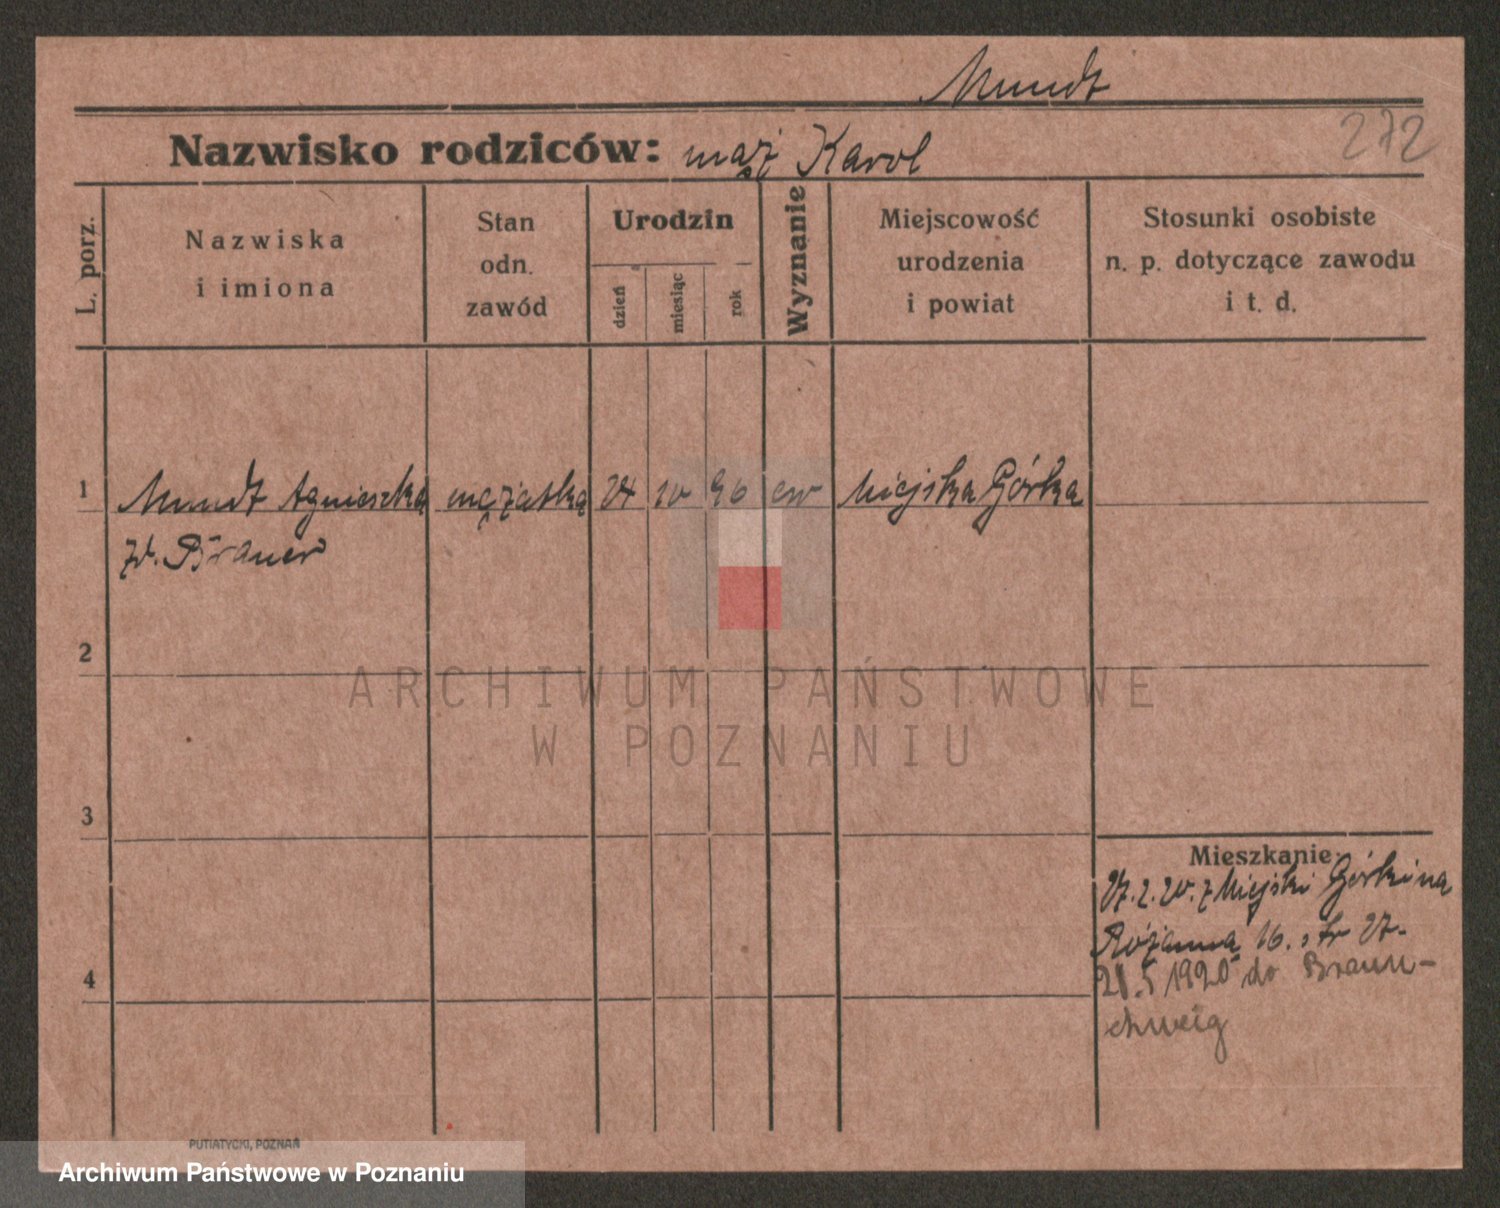 Mundt
272
Nazwisko rodziców: mąż Karol
L. porz.
Nazwiska
i imiona
Stan
odn.
zawód
Urodzin
dzień
miesiąc
rok
Wyznanie
Miejscowość
urodzenia
i powiat
Stosunki osobiste
n. p. dotyczące zawodu
i t. d.
1 Mundt Agnieszka mężatka 24 10 96 ew Miejska Górka
zd. Brauer
2
ARCHIWUM PAŃSTWOWE
W POZNANIU
3
Mieszkanie:
27. 2. 20. z Miejski Górki na
Różanną 16. 27.
4
28. 5 1920 do Braun-
schweig
PUTIATYCKI, POZNAŃ
Archiwum Państwowe w Poznaniu